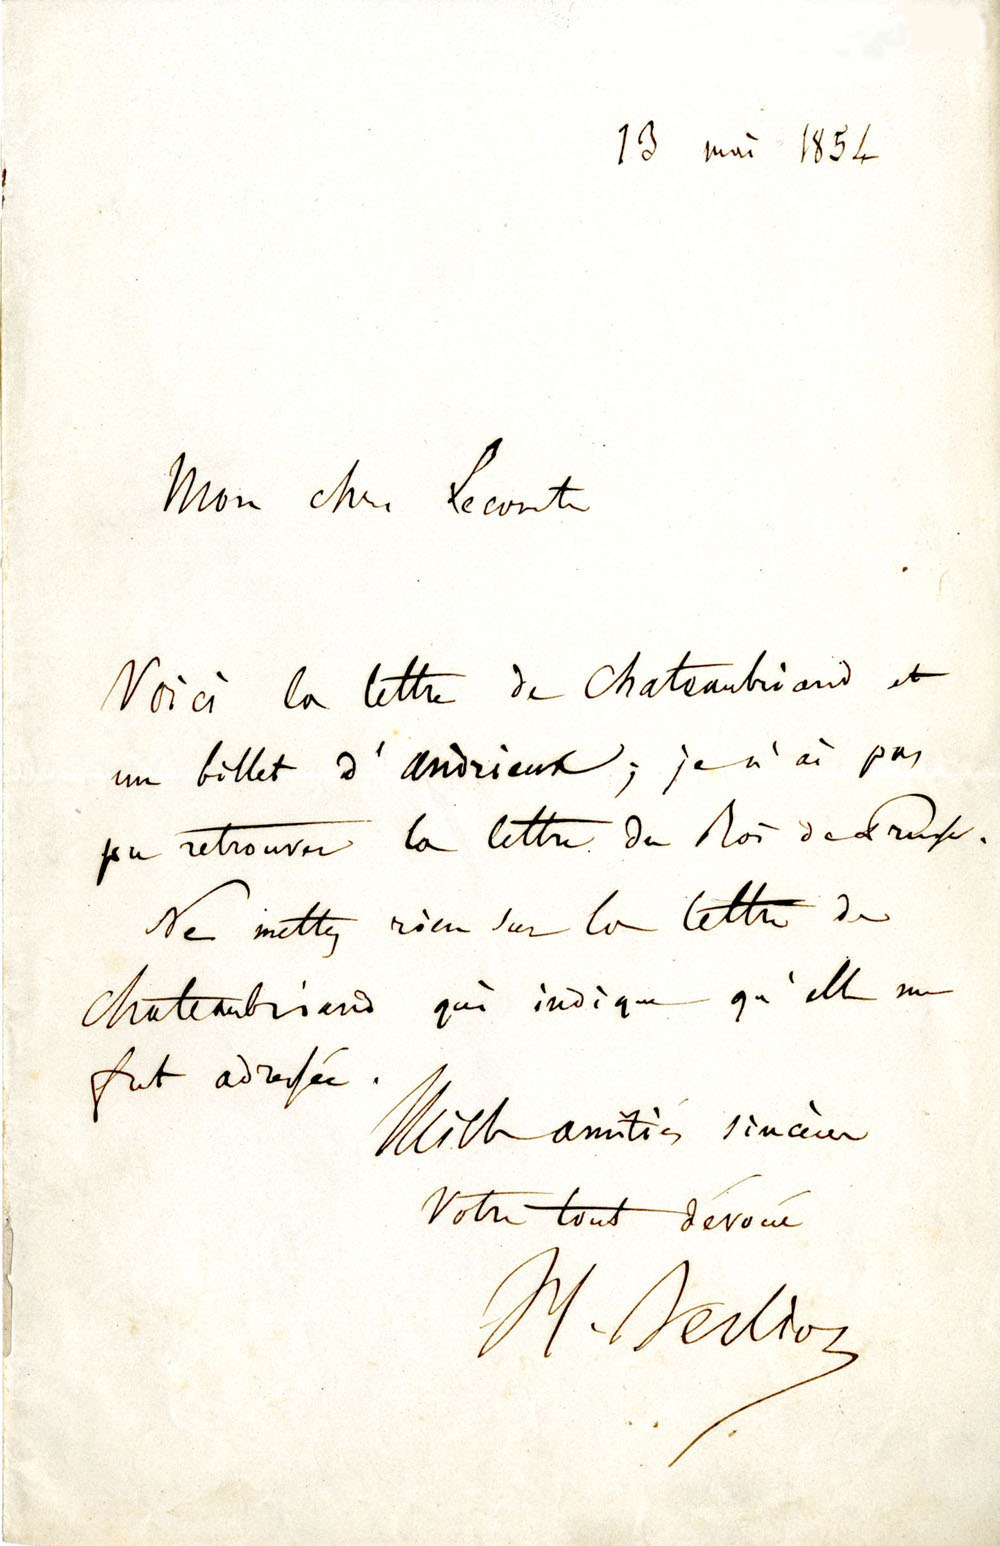 13 mai 1854
Mon cher Lecomte
Voici la lettre de Chateaubriand et
un billet d'Andrieux ; je n'ai pas
pu retrouver la lettre du Roi de Prusse.
Ne mettez rien sur la lettre de
Chateaubriand qui indique qu'elle me
fut adressée.
Mille amitiés sincères
Votre tout dévoué
H. Berlioz